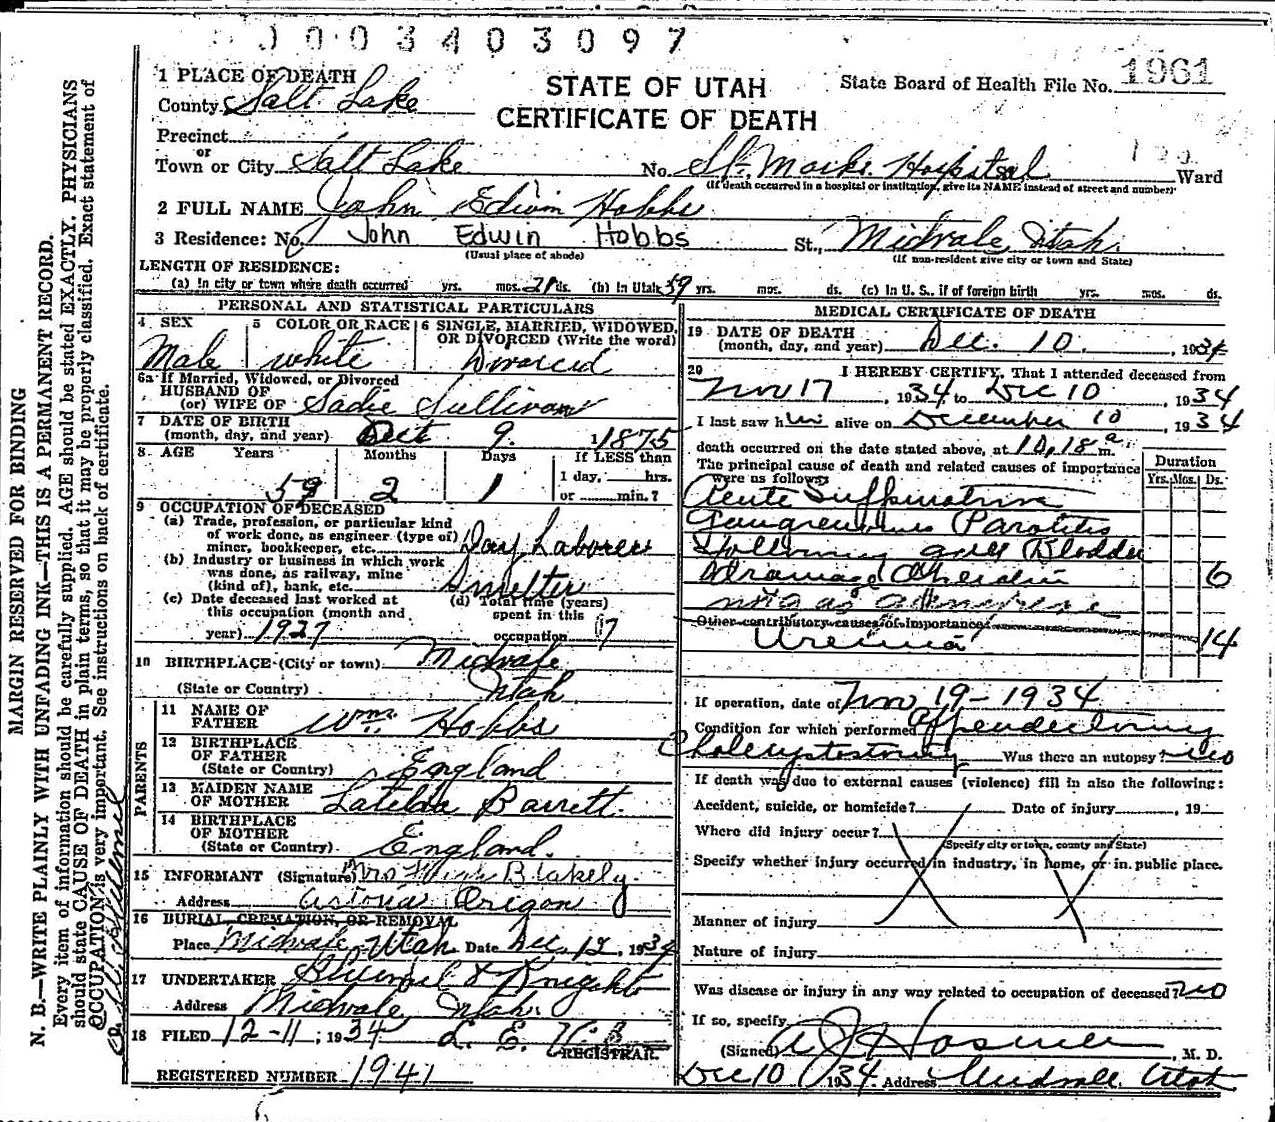 0003403097
1 PLACE OF DEATH
County Salt Lake
STATE OF UTAH
CERTIFICATE OF DEATH
State Board of Health File No. 1961
Precinct
or
Town or City Salt Lake No. St. Marks Hospital Ward
(If death occurred in a hospital or institution, give its NAME instead of street and number)
2 FULL NAME John Edwin Hobbs
3 Residence: No. John Edwin Hobbs St., Midvale, Utah.
(Usual place of abode) (If non-resident give city or town and State)
LENGTH OF RESIDENCE:
(a) In city or town where death occurred yrs. mos. 21 ds. (b) In Utah 59 yrs. mos. ds. (c) In U. S., if of foreign birth yrs. mos. ds.
PERSONAL AND STATISTICAL PARTICULARS
4 SEX Male
5 COLOR OR RACE white
6 SINGLE, MARRIED, WIDOWED, OR DIVORCED (Write the word) Divorced
6a If Married, Widowed, or Divorced
HUSBAND OF
(or) WIFE OF Sadie Sullivan
7 DATE OF BIRTH
(month, day, and year) Oct 9. 1875
8 AGE Years Months Days If LESS than
1 day, hrs.
59 2 1 or min.?
9 OCCUPATION OF DECEASED
(a) Trade, profession, or particular kind
of work done, as engineer (type of)
miner, bookkeeper, etc. Day Laborer
(b) Industry or business in which work
was done, as railway, mine
(kind of), bank, etc. Smelter
(c) Date deceased last worked at
this occupation (month and
year) 1927
(d) Total time (years)
spent in this
occupation 17
10 BIRTHPLACE (City or town) Midvale
(State or Country) Utah
PARENTS
11 NAME OF
FATHER Wm. Hobbs
12 BIRTHPLACE
OF FATHER
(State or Country) England
13 MAIDEN NAME
OF MOTHER Barrett.
14 BIRTHPLACE
OF MOTHER
(State or Country) England.
15 INFORMANT (Signature) Mrs Blakely
Address Astoria Oregon
16 BURIAL, CREMATION, OR REMOVAL
Place Midvale, Utah. Date Dec. 12, 1934
17 UNDERTAKER & Knight
Address Midvale, Utah.
18 FILED 12-11, 1934 L. E.
REGISTRAR.
REGISTERED NUMBER 1941
MEDICAL CERTIFICATE OF DEATH
19 DATE OF DEATH
(month, day, and year) Dec. 10, 1934
20 I HEREBY CERTIFY, That I attended deceased from
Nov 17, 1934 to Dec 10, 1934
I last saw him alive on December 10, 1934
death occurred on the date stated above, at 10.18 a m.
The principal cause of death and related causes of importance
were as follows:
Duration
Yrs. Mos. Ds.
Acute Suppurative
Gangrenous Parotitis
following gall Bladder
Drainage 6
Other contributory causes of importance:
Uremia 14
If operation, date of Nov 19-1934
Condition for which performed Appendectomy
Cholecystostomy Was there an autopsy? no
If death was due to external causes (violence) fill in also the following:
Accident, suicide, or homicide? Date of injury , 19
Where did injury occur?
(Specify city or town, county and State)
Specify whether injury occurred in industry, in home, or in public place.
Manner of injury
Nature of injury
Was disease or injury in any way related to occupation of deceased? no
If so, specify
(Signed) A J Hosmer, M. D.
Dec 10 1934 Address Midvale Utah
MARGIN RESERVED FOR BINDING
N. B.—WRITE PLAINLY WITH UNFADING INK—THIS IS A PERMANENT RECORD.
Every item of information should be carefully supplied. AGE should be stated EXACTLY. PHYSICIANS
should state CAUSE OF DEATH in plain terms, so that it may be properly classified. Exact statement of
OCCUPATION is very important. See instructions on back of certificate.